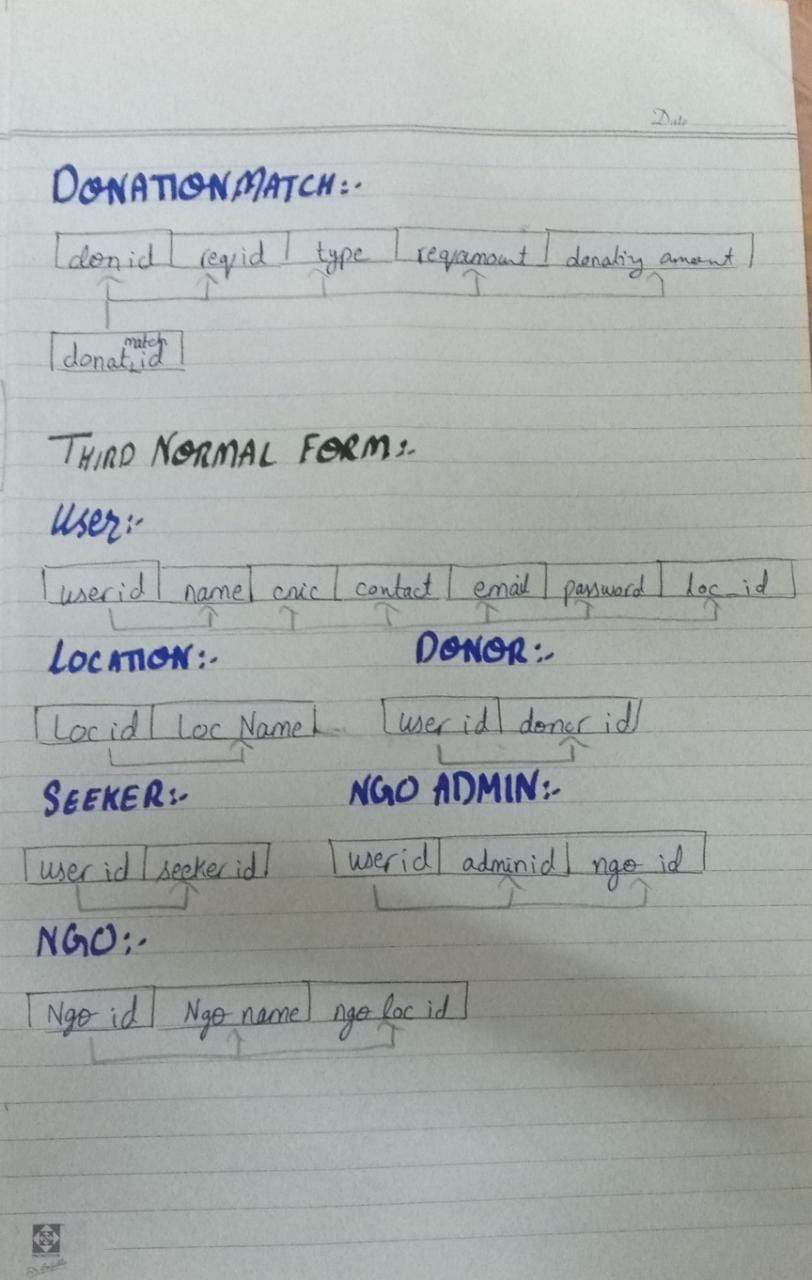 Date
DONATIONMATCH:-
donid reqid type reqamount donating amount
donat_id match
THIRD NORMAL FORM:-
User:-
userid name cnic contact email password loc_id
LOCATION:- DONOR:-
Loc id Loc Name user id donor id
SEEKER:- NGO ADMIN:-
user id seeker id userid adminid ngo id
NGO:-
Ngo id Ngo name ngo loc id